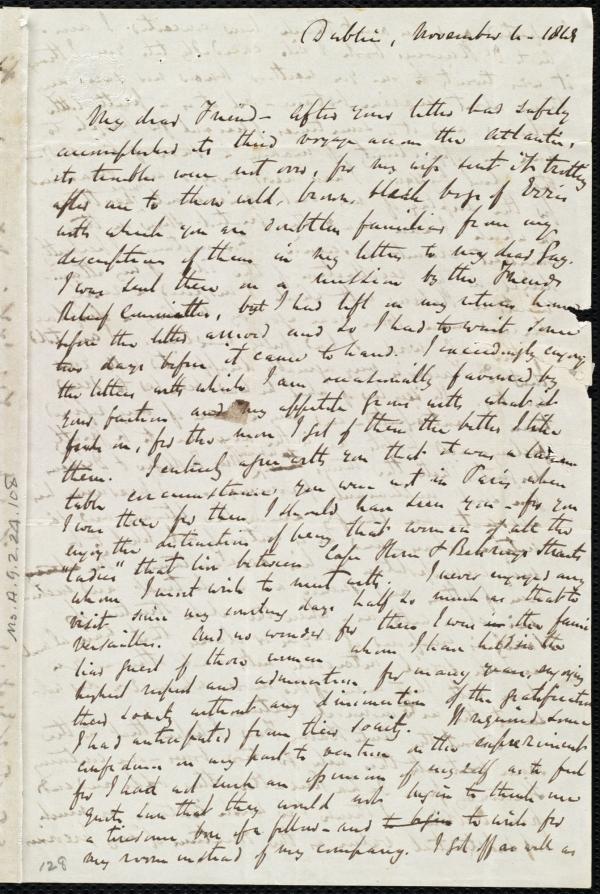 Dublin, November 6 - 1868
My dear Friend - After your letter had safely
accomplished its third voyage across the Atlantic,
its troubles were not over, for my wife sent it trotting
after me to those wild, brown, bleak bogs of Erris
with which you are doubtless familiar from my
descriptions of them in my letters to my dear Gay.
I was sent there on a mission by the Friends
Relief Committee, but I had left on my return home
before the letter arrived and so I had to wait some
two days before it came to hand. I exceedingly enjoy
the letters with which I am occasionally favored by
your factious and my appetite grows with what it
feeds on, for the more I get of them the better I like
them. I entirely agree with you that it was a lamen
table circumstance you were not in Paris when
I was there for then I should have seen you - for you
enjoy the distinction of being that woman of all the
"ladies" that live between Cape Horn & Behrings Straits
whom I most wish to meet with. I never enjoyed any
visit since my courting days half so much as that to
Versailles. And no wonder for there I was in the fami
liar guest of those women whom I have held in the
highest respect and admiration for many years, enjoying
their society without any diminution of the gratification
I had anticipated from their society. It required some
confidence on my part to venture on the experiment
for I had not such an opinion of myself as to feel
quite sure that they would not begin to think me
a tiresome bore of a fellow - and to begin to wish for
my room instead of my company. I got off as well as
Ms. A.9.2.24.108
128